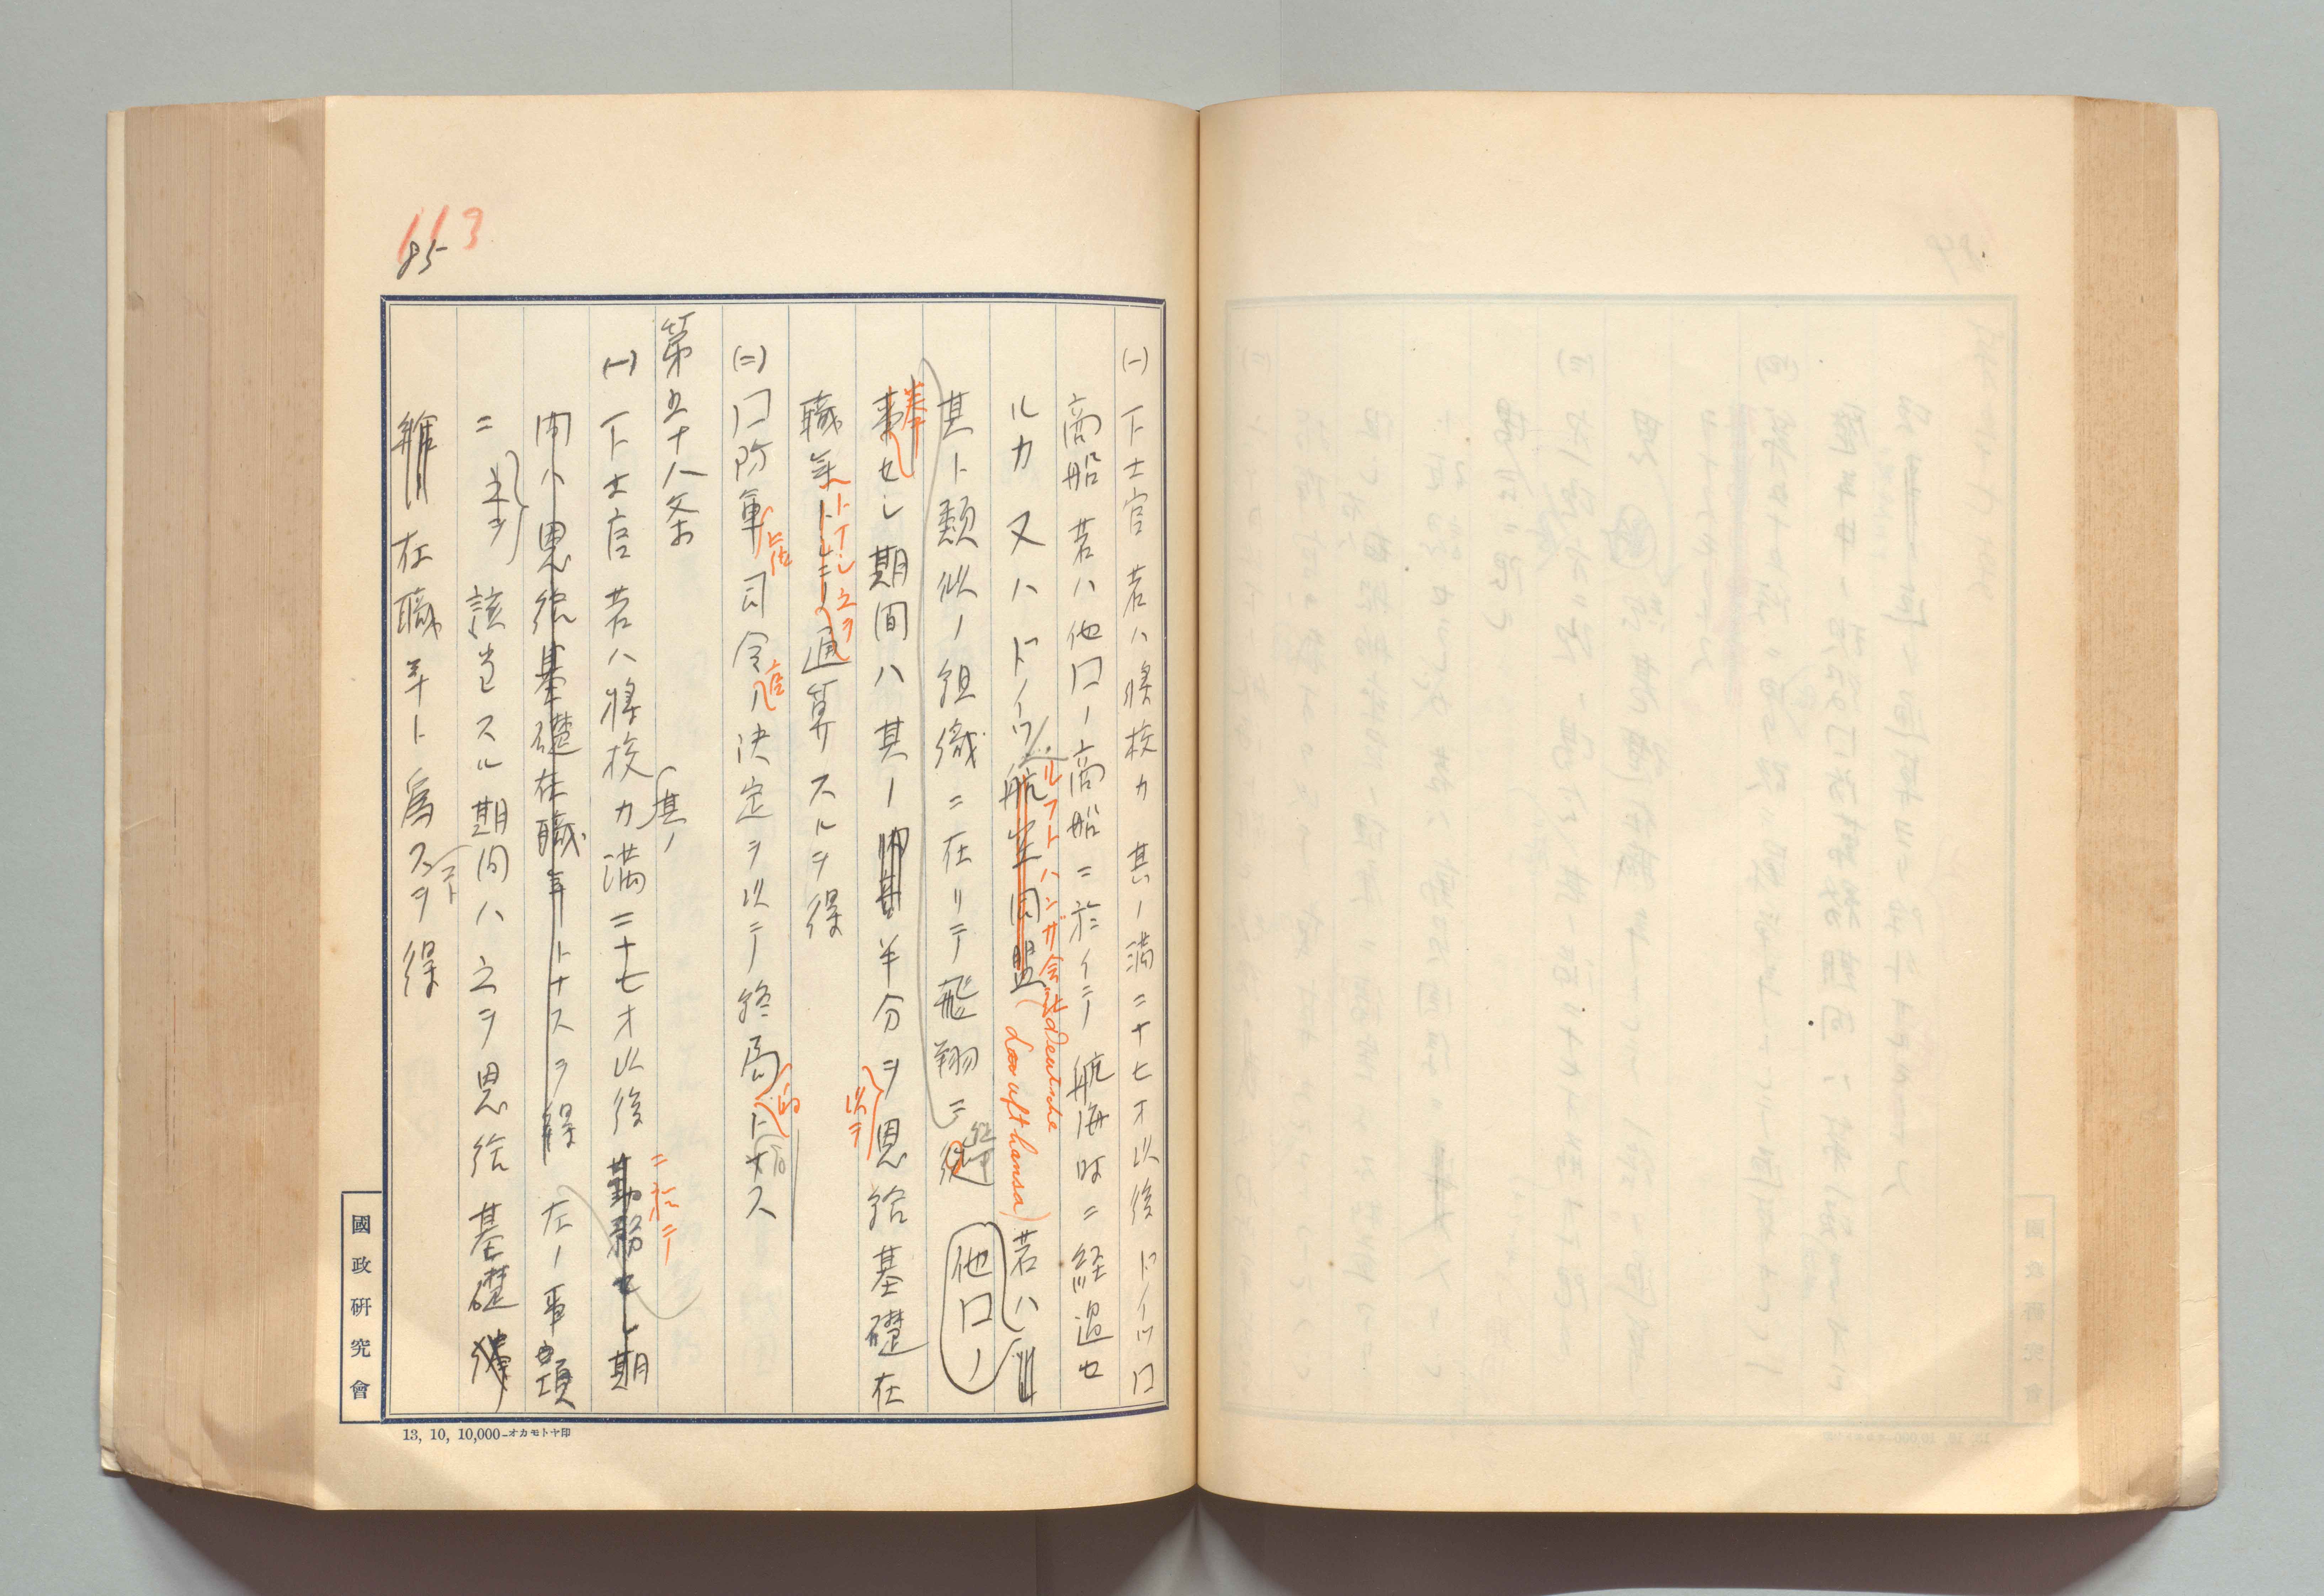 113
85
(一)下士官若ハ将校カ其ノ満二十七才以後ドイツ口
商船若ハ他口ノ商船ニ於イテ航海時ニ経過セ
ルカ又ハドイツ航空同盟若ハ
ルフトハンザ会社(Deutsche Luft hansa)
他口ノ
其ト類似ノ組織ニ在リテ飛翔ニ従
事セシ期間ハ其ノ半分ヲ恩給基礎在
奉
以テ
職年トシテ通算スルヲ得
トイシ之ヲ
(二)口防軍司令ハ決定ヲ以テ終局トナス
最高
官
的
第五十八条
(其ノ
(一)下士官若ハ将校カ満二十七才以後勤務セシ期
ニ於テ
間ハ恩給基礎在職年トナスヲ得 左ノ事項
ニ該当スル期間ハ之ヲ恩給基礎
在職年ト為スヲ得
コト
國政研究會
13, 10, 10,000-オカモトヤ印